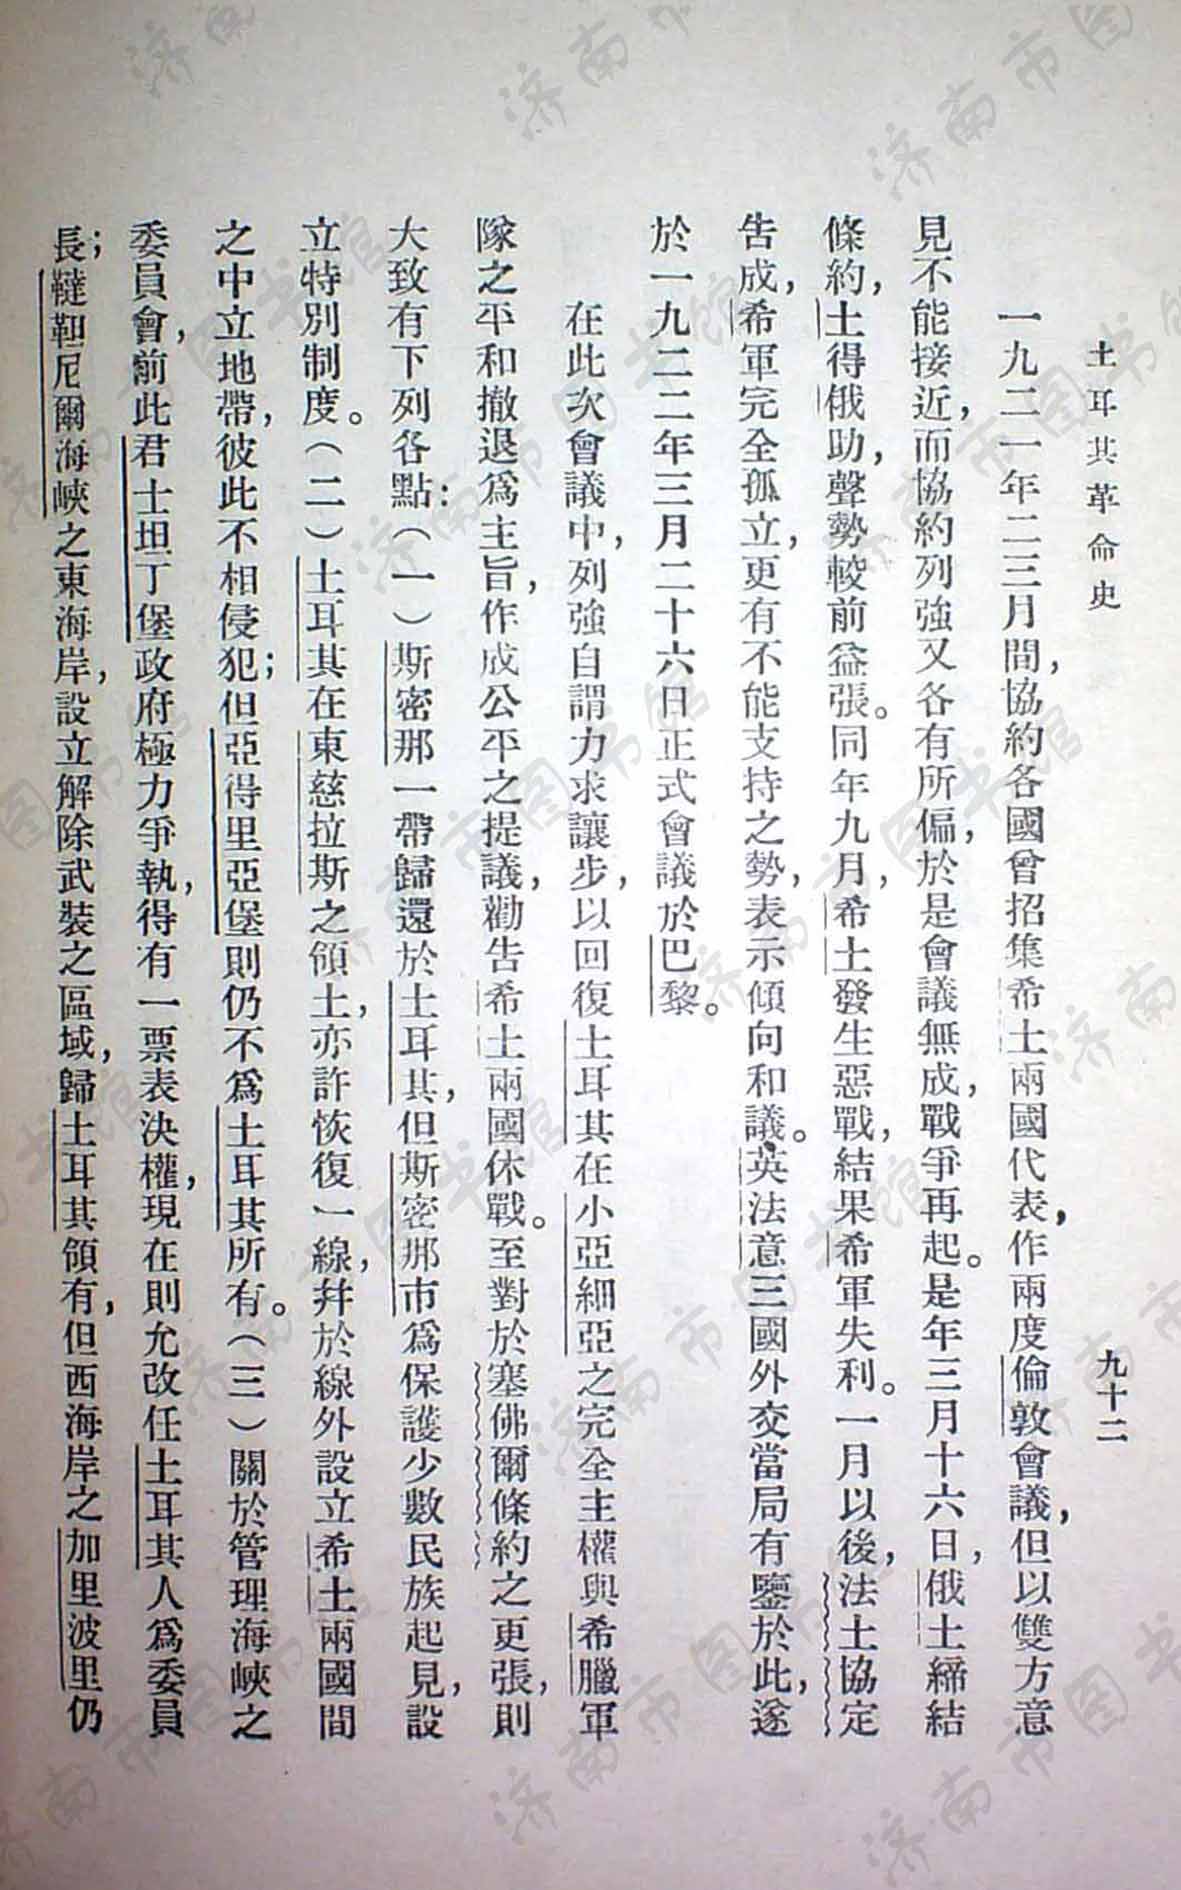 土耳其革命史
九十二
一九二一年二三月間，協約各國曾招集希土兩國代表，作兩度倫敦會議，但以雙方意
見不能接近，而協約列強又各有所偏，於是會議無成，戰爭再起。是年三月十六日，俄土締結
條約，土得俄助，聲勢較前益張。同年九月，希土發生惡戰，結果希軍失利。一月以後，法土協定
告成，希軍完全孤立，更有不能支持之勢，表示傾向和議。英法意三國外交當局有鑒於此，遂
於一九二二年三月二十六日正式會議於巴黎。
在此次會議中，列強自謂力求讓步，以回復土耳其在小亞細亞之完全主權與希臘軍
隊之平和撤退爲主旨，作成公平之提議，勸告希土兩國休戰。至對於塞佛爾條約之更張，則
大致有下列各點：（一）斯密那一帶歸還於土耳其，但斯密那市爲保護少數民族起見，設
立特別制度。（二）土耳其在東慈拉斯之領土，亦許恢復一線，幷於線外設立希土兩國間
之中立地帶，彼此不相侵犯；但亞得里亞堡則仍不爲土耳其所有。（三）關於管理海峽之
委員會，前此君士坦丁堡政府極力爭執，得有一票表決權，現在則允改任土耳其人爲委員
長；韃靼尼爾海峽之東海岸，設立解除武裝之區域，歸土耳其領有，但西海岸之加里波里仍
济南市图书馆